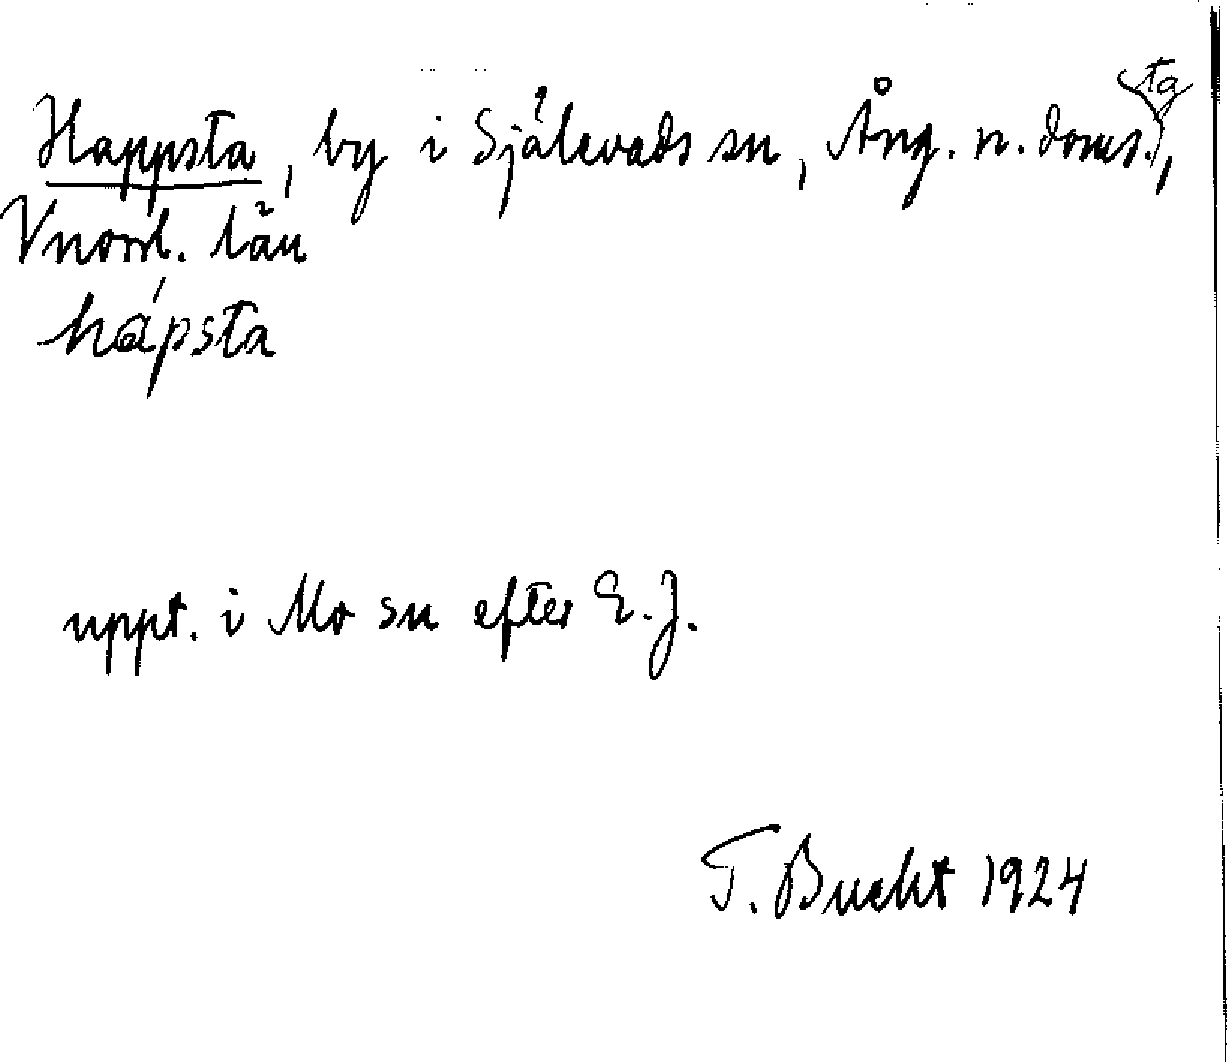 Happsta, by i Själevads sn, Ång. n. doms. tg,
Vnorrl. län
hápsta
uppt. i Mo sn efter E. J.
T. Bucht 1924